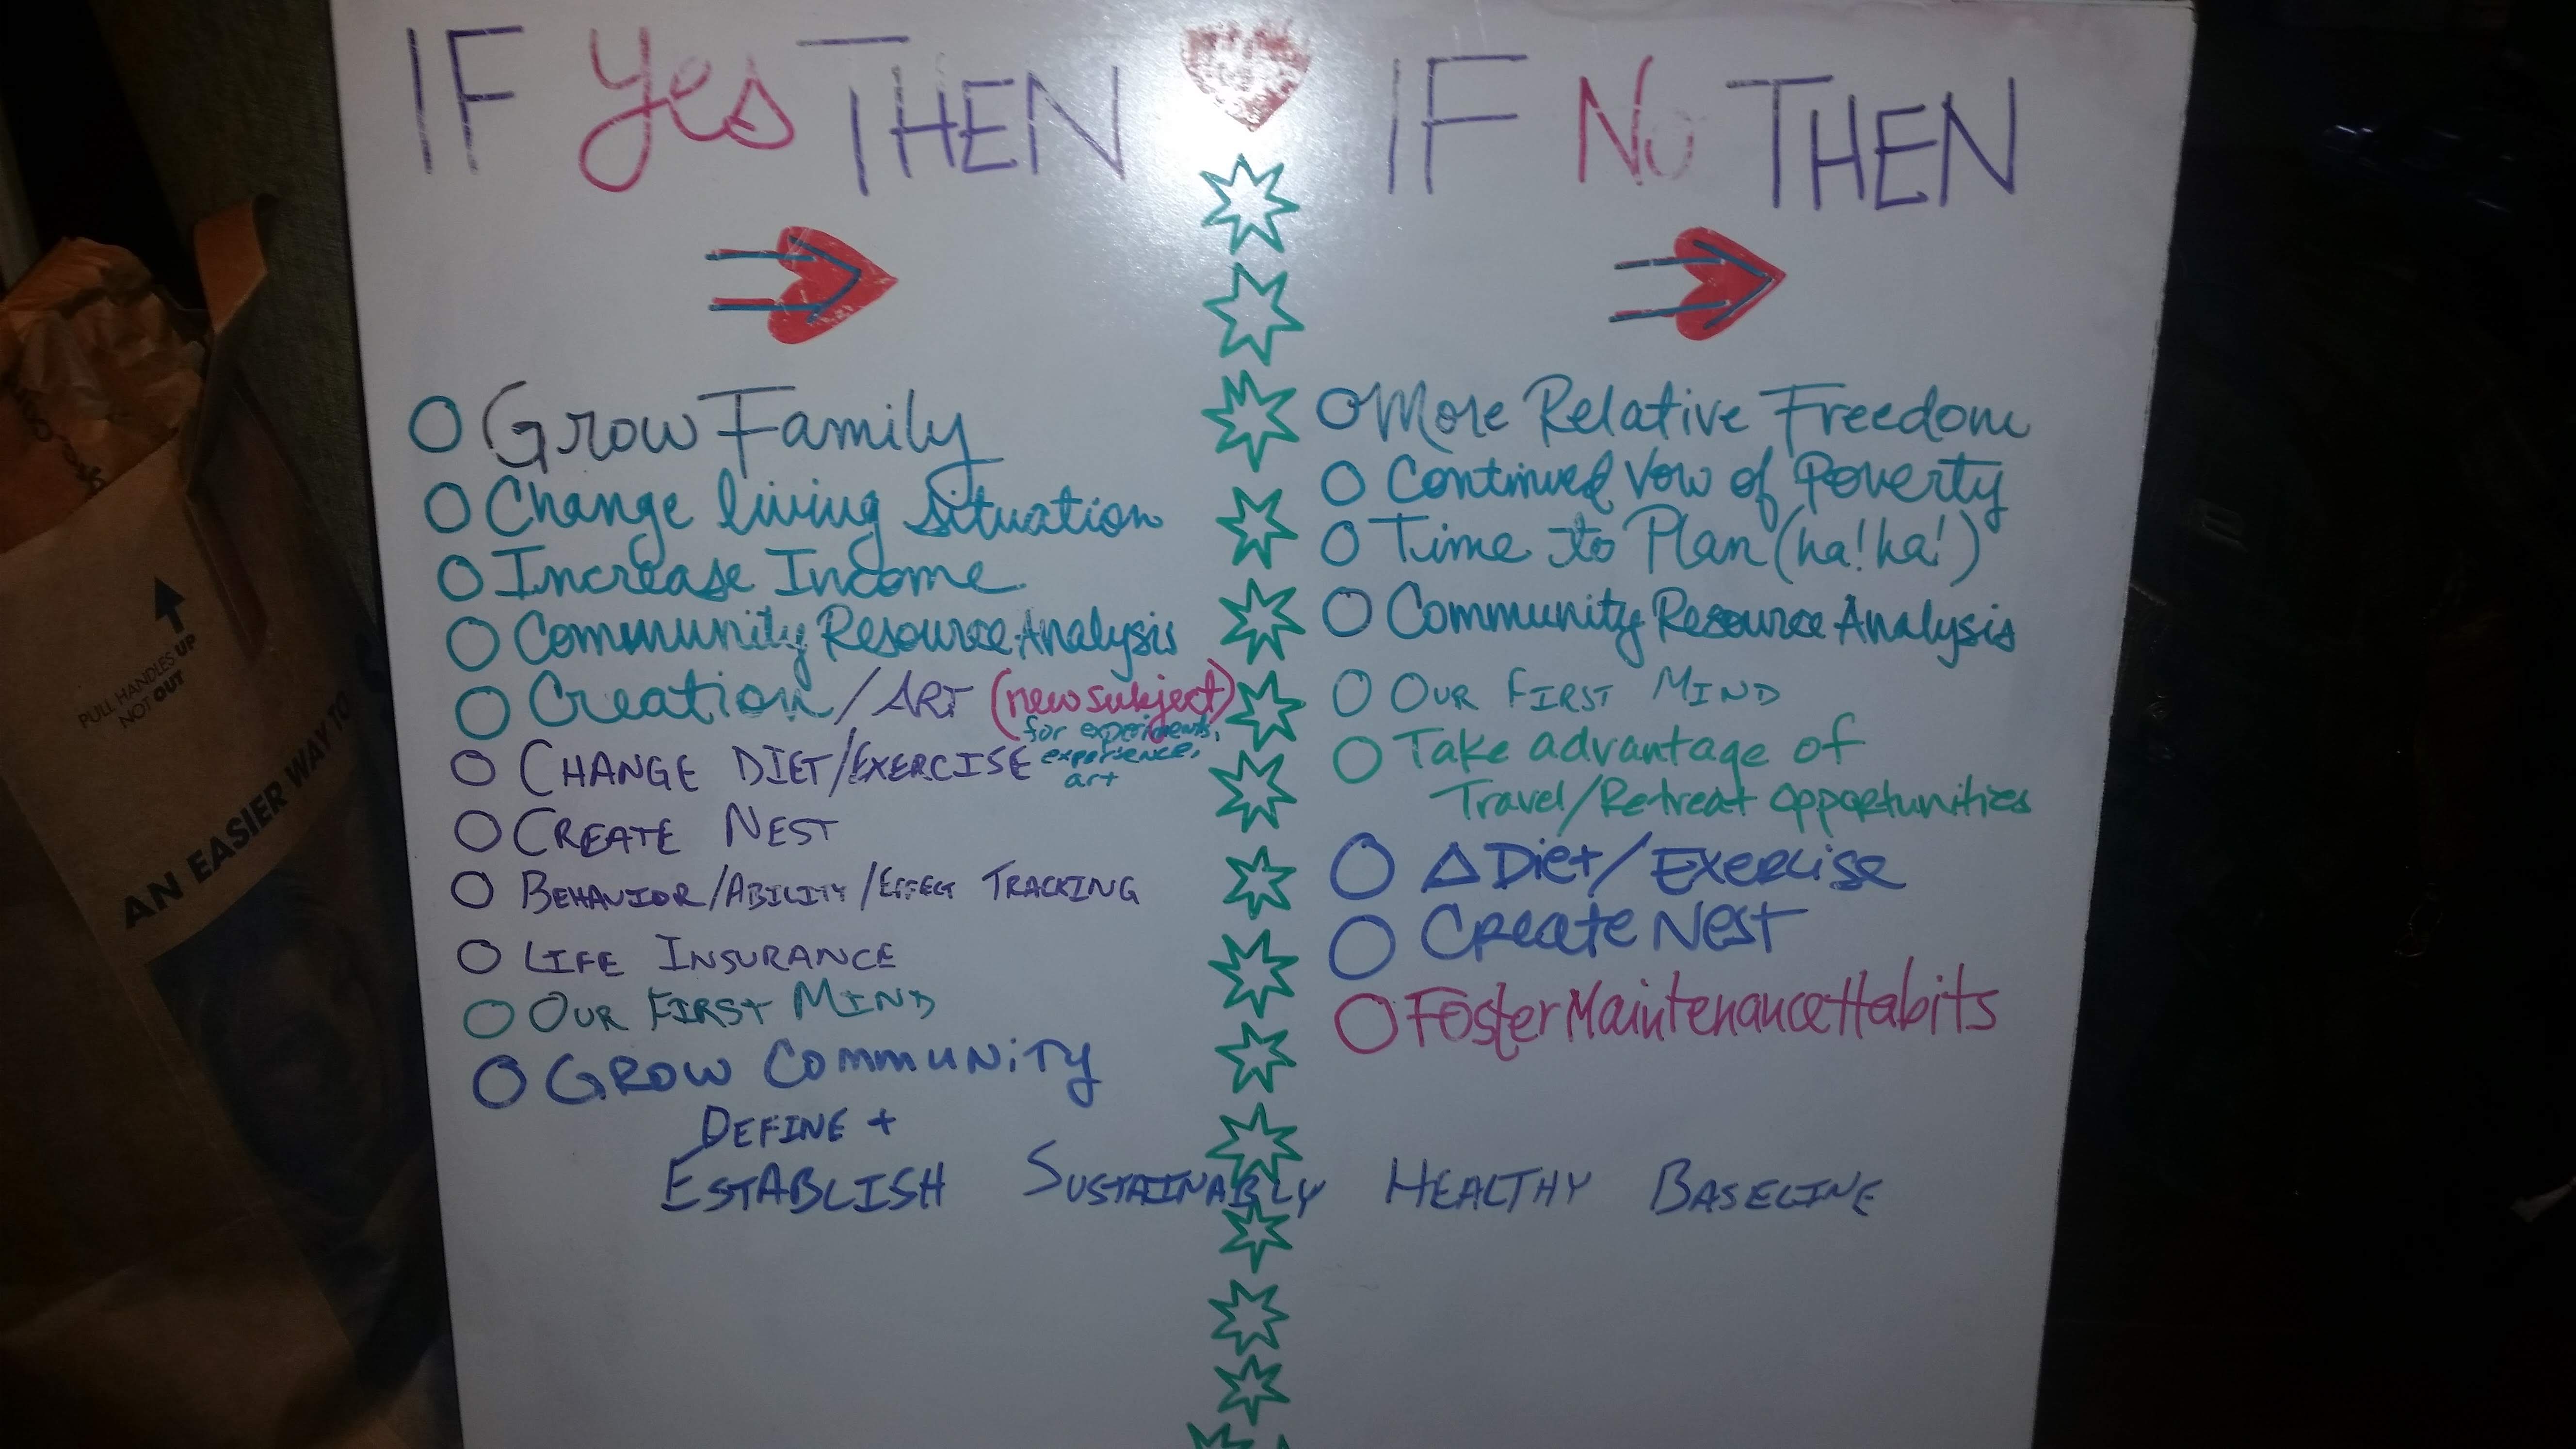 IF Yes THEN
IF No THEN
Grow Family
Change living situation
Increase Income
Community Resource Analysis
Creation/ART (new subject)
for experiments,
experience,
art
CHANGE DIET/EXERCISE
CREATE NEST
BEHAVIOR/ABILITY/EFFECT TRACKING
LIFE INSURANCE
OUR FIRST MIND
GROW COMMUNITY
More Relative Freedom
Continued Vow of Poverty
Time to Plan (ha! ha!)
Community Resource Analysis
OUR FIRST MIND
Take advantage of
Travel/Retreat opportunities
Δ Diet/Exercise
Create Nest
Foster Maintenance Habits
DEFINE +
ESTABLISH SUSTAINABLY HEALTHY BASELINE
PULL HANDLES UP
NOT OUT
AN EASIER WAY TO